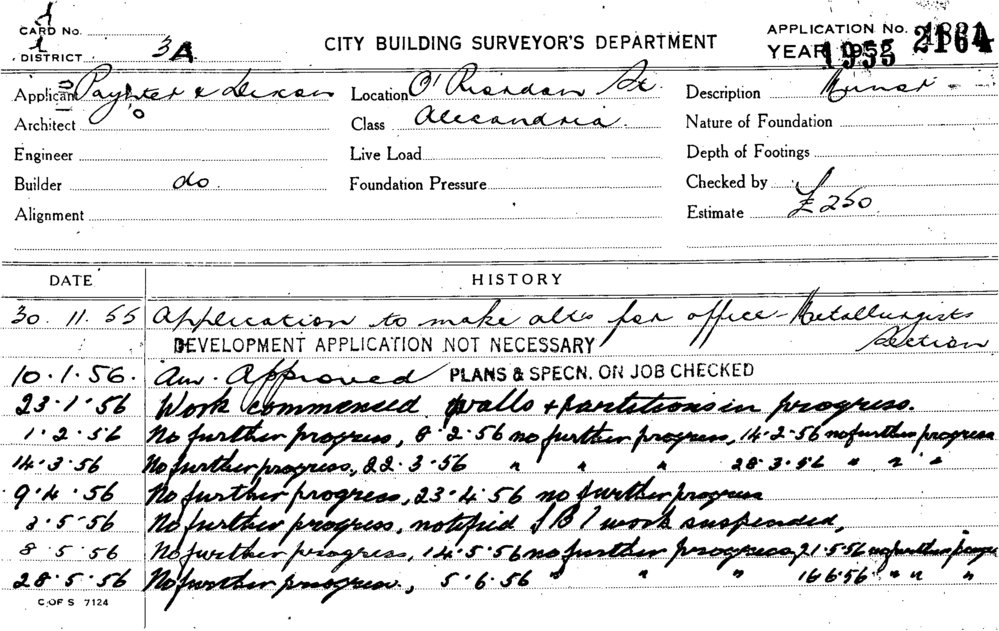 CARD No.
DISTRICT 3A
CITY BUILDING SURVEYOR'S DEPARTMENT
APPLICATION No. 2164
YEAR 1955
Applicant Paynter & Dixon Location O'Riordan St. Description Minor
Architect Class Alexandria. Nature of Foundation
Engineer Live Load Depth of Footings
Builder do. Foundation Pressure Checked by
Alignment Estimate £250
DATE HISTORY
30.11.55 Application to make alts for office - Metallurgists
Section
DEVELOPMENT APPLICATION NOT NECESSARY
10.1.56. Approved PLANS & SPECN. ON JOB CHECKED
23.1.56 Work commenced walls & partitions in progress.
1.2.56 No further progress, 8.2.56 no further progress, 14.2.56 no further progress
14.3.56 No further progress, 22.3.56 " " " 28.3.56 " " "
9.4.56 No further progress, 23.4.56 no further progress
2.5.56 No further progress, notified SBI work suspended,
8.5.56 No further progress, 14.5.56 no further progress, 21.5.56 no further progress
28.5.56 No further progress, 5.6.56 " " " 16.6.56 " " "
C OF S 7124